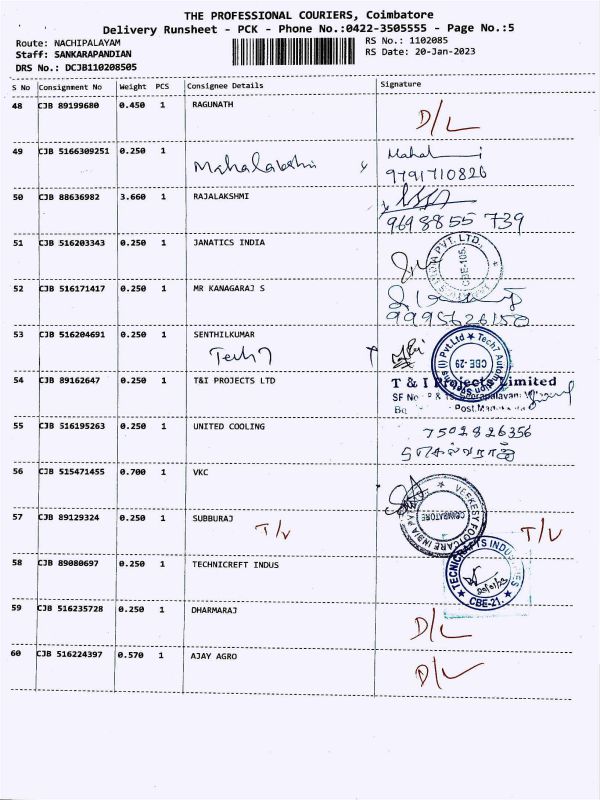 THE PROFESSIONAL COURIERS, Coimbatore
Delivery Runsheet - PCK - Phone No.:0422-3505555 - Page No.:5
Route: NACHIPALAYAM RS No.: 1102085
Staff: SANKARAPANDIAN RS Date: 20-Jan-2023
DRS No.: DCJB110208505
S No Consignment No Weight PCS Consignee Details Signature
48 CJB 89199680 0.450 1 RAGUNATH D/L
49 CJB 5166309251 0.250 1 Mahalakshmi
9791710826
50 CJB 88636982 3.660 1 RAJALAKSHMI
9698855739
51 CJB 516203343 0.250 1 JANATICS INDIA INDIA PVT. LTD., CBE-105.
52 CJB 516171417 0.250 1 MR KANAGARAJ S
9995626150
53 CJB 516204691 0.250 1 SENTHILKUMAR
Tech7 Pvt.Ltd ★ Tech7 CBE -29
54 CJB 89162647 0.250 1 T&I PROJECTS LTD T & I Projects Limited
SF No
Post.
55 CJB 516195263 0.250 1 UNITED COOLING 7502826356
56 CJB 515471455 0.700 1 VKC VEEKESY FOOTCARE INDIA COIMBATORE
57 CJB 89129324 0.250 1 SUBBURAJ T/V T/V
58 CJB 89080697 0.250 1 TECHNICREFT INDUS TECNICRAFTS INDUSTRIES CBE-21.
59 CJB 516235728 0.250 1 DHARMARAJ D/L
60 CJB 516224397 0.570 1 AJAY AGRO D/L